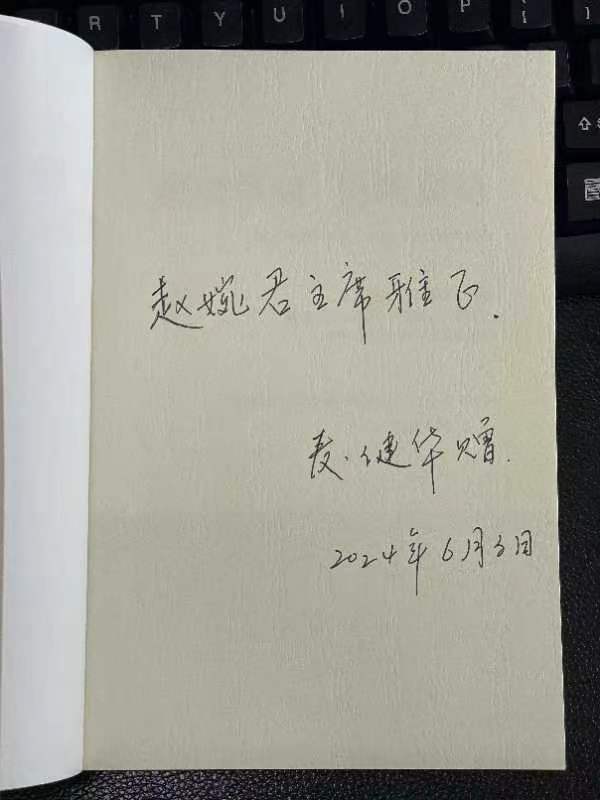 R T Y U I O P
赵婉君主席雅正.
麦健华赠.
2024年6月3日